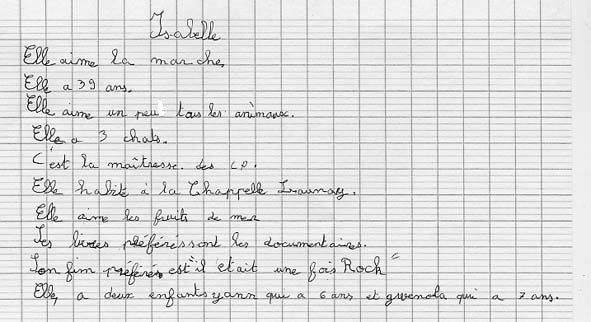 Isabelle
Elle aime la marche,
Elle a 39 ans.
Elle aime un peu tous les animaux.
Elle a 3 chats.
C'est la maîtresse. des CP.
Elle habite à la Chappelle Launay.
Elle aime les fruits de mer
Ses livres préférés sont les documentaires.
Son fim préférés est "il était une fois Rock"
Elle, a deux enfants yann qui a 6 ans et gwenola qui a 7 ans.